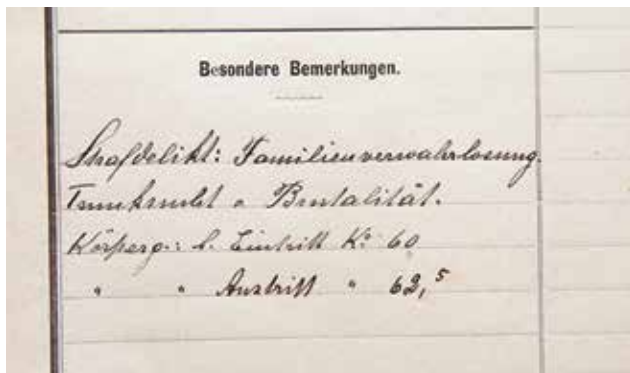 Besondere Bemerkungen.
Strafdelikt: Familienverwahrlosung.
Trunksucht u Brutalität.
Körperg.: b. Eintritt Ko 60
" " Austritt " 62,5